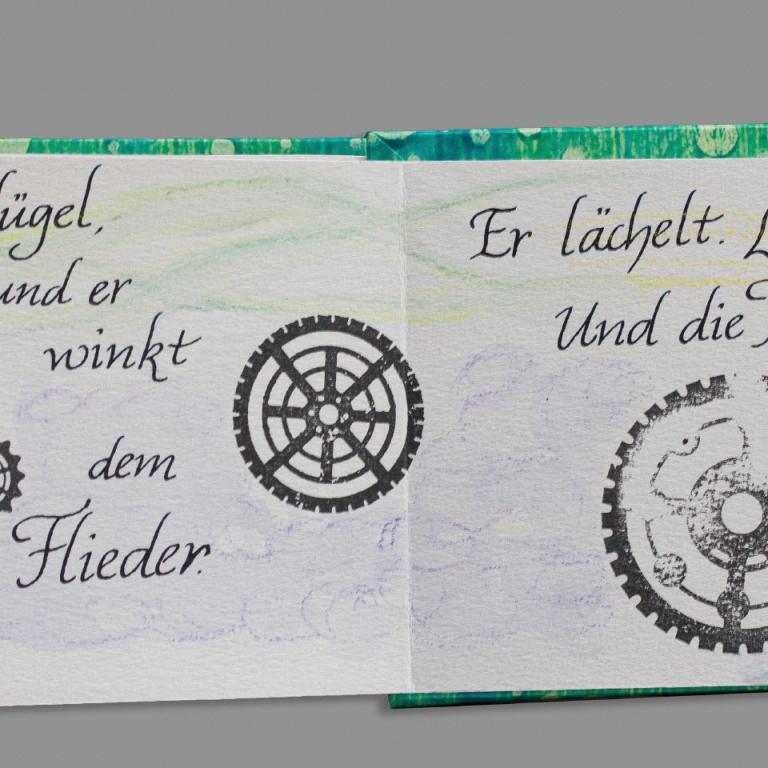 und er
winkt
dem
Flieder.
Er lächelt.
Und die